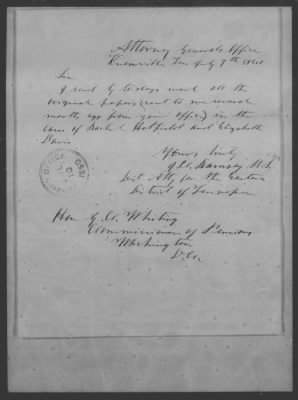 Attorney General's Office
Knoxville Ten July 9th
Sir
I send by to days mail all the
original papers (sent to me several
months ago from your office) in the
case of Rachel and Elizabeth
Davis
Yours truly
Ramsey
Dist Atty for the Eastern
District of Tennessee
Hon G. C. Whiting
Commissioner of Pensions
Washington
D. C.
OFFICE